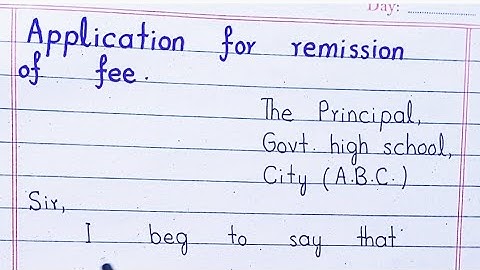 Day:
Application for remission
of fee.
The Principal,
Govt. high school,
City (A.B.C.)
Sir,
I beg to say that